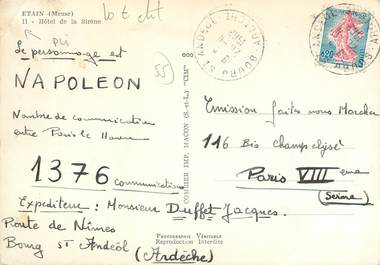 ETAIN (Meuse)
11 - Hôtel de la Sirène
Le personnage est
NAPOLEON
Nombre de communication
entre Paris le Havre
1376 communications
Expediteur: Monsieur Duffet Jacques.
Route de Nîmes
Bourg St Andéol (Ardèche)
55
COMBIER IMP. MACON (S.-et-L.) "CIM"
Photographie Véritable
Reproduction Interdite
BOURG ST ANDEOL
0,20
Emission faites nous Marcher
116 Bis Champs elysé
Paris VIII eme
(Seine)